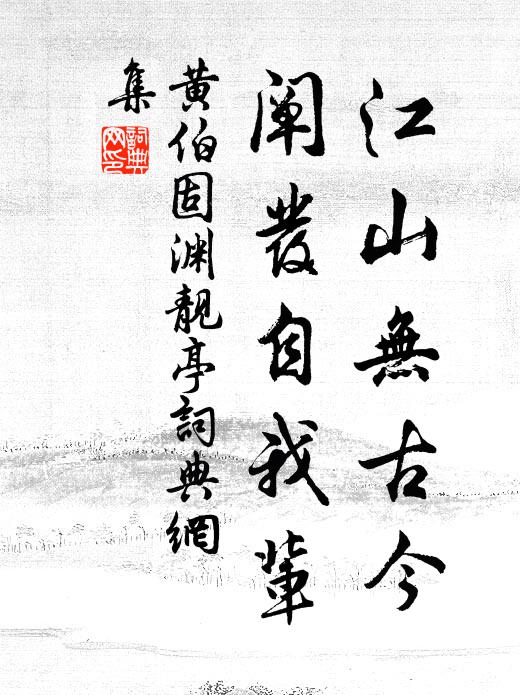 江山無古今
闡發自我輩
黃伯固淵靚亭詞典網
集
詞典
网印